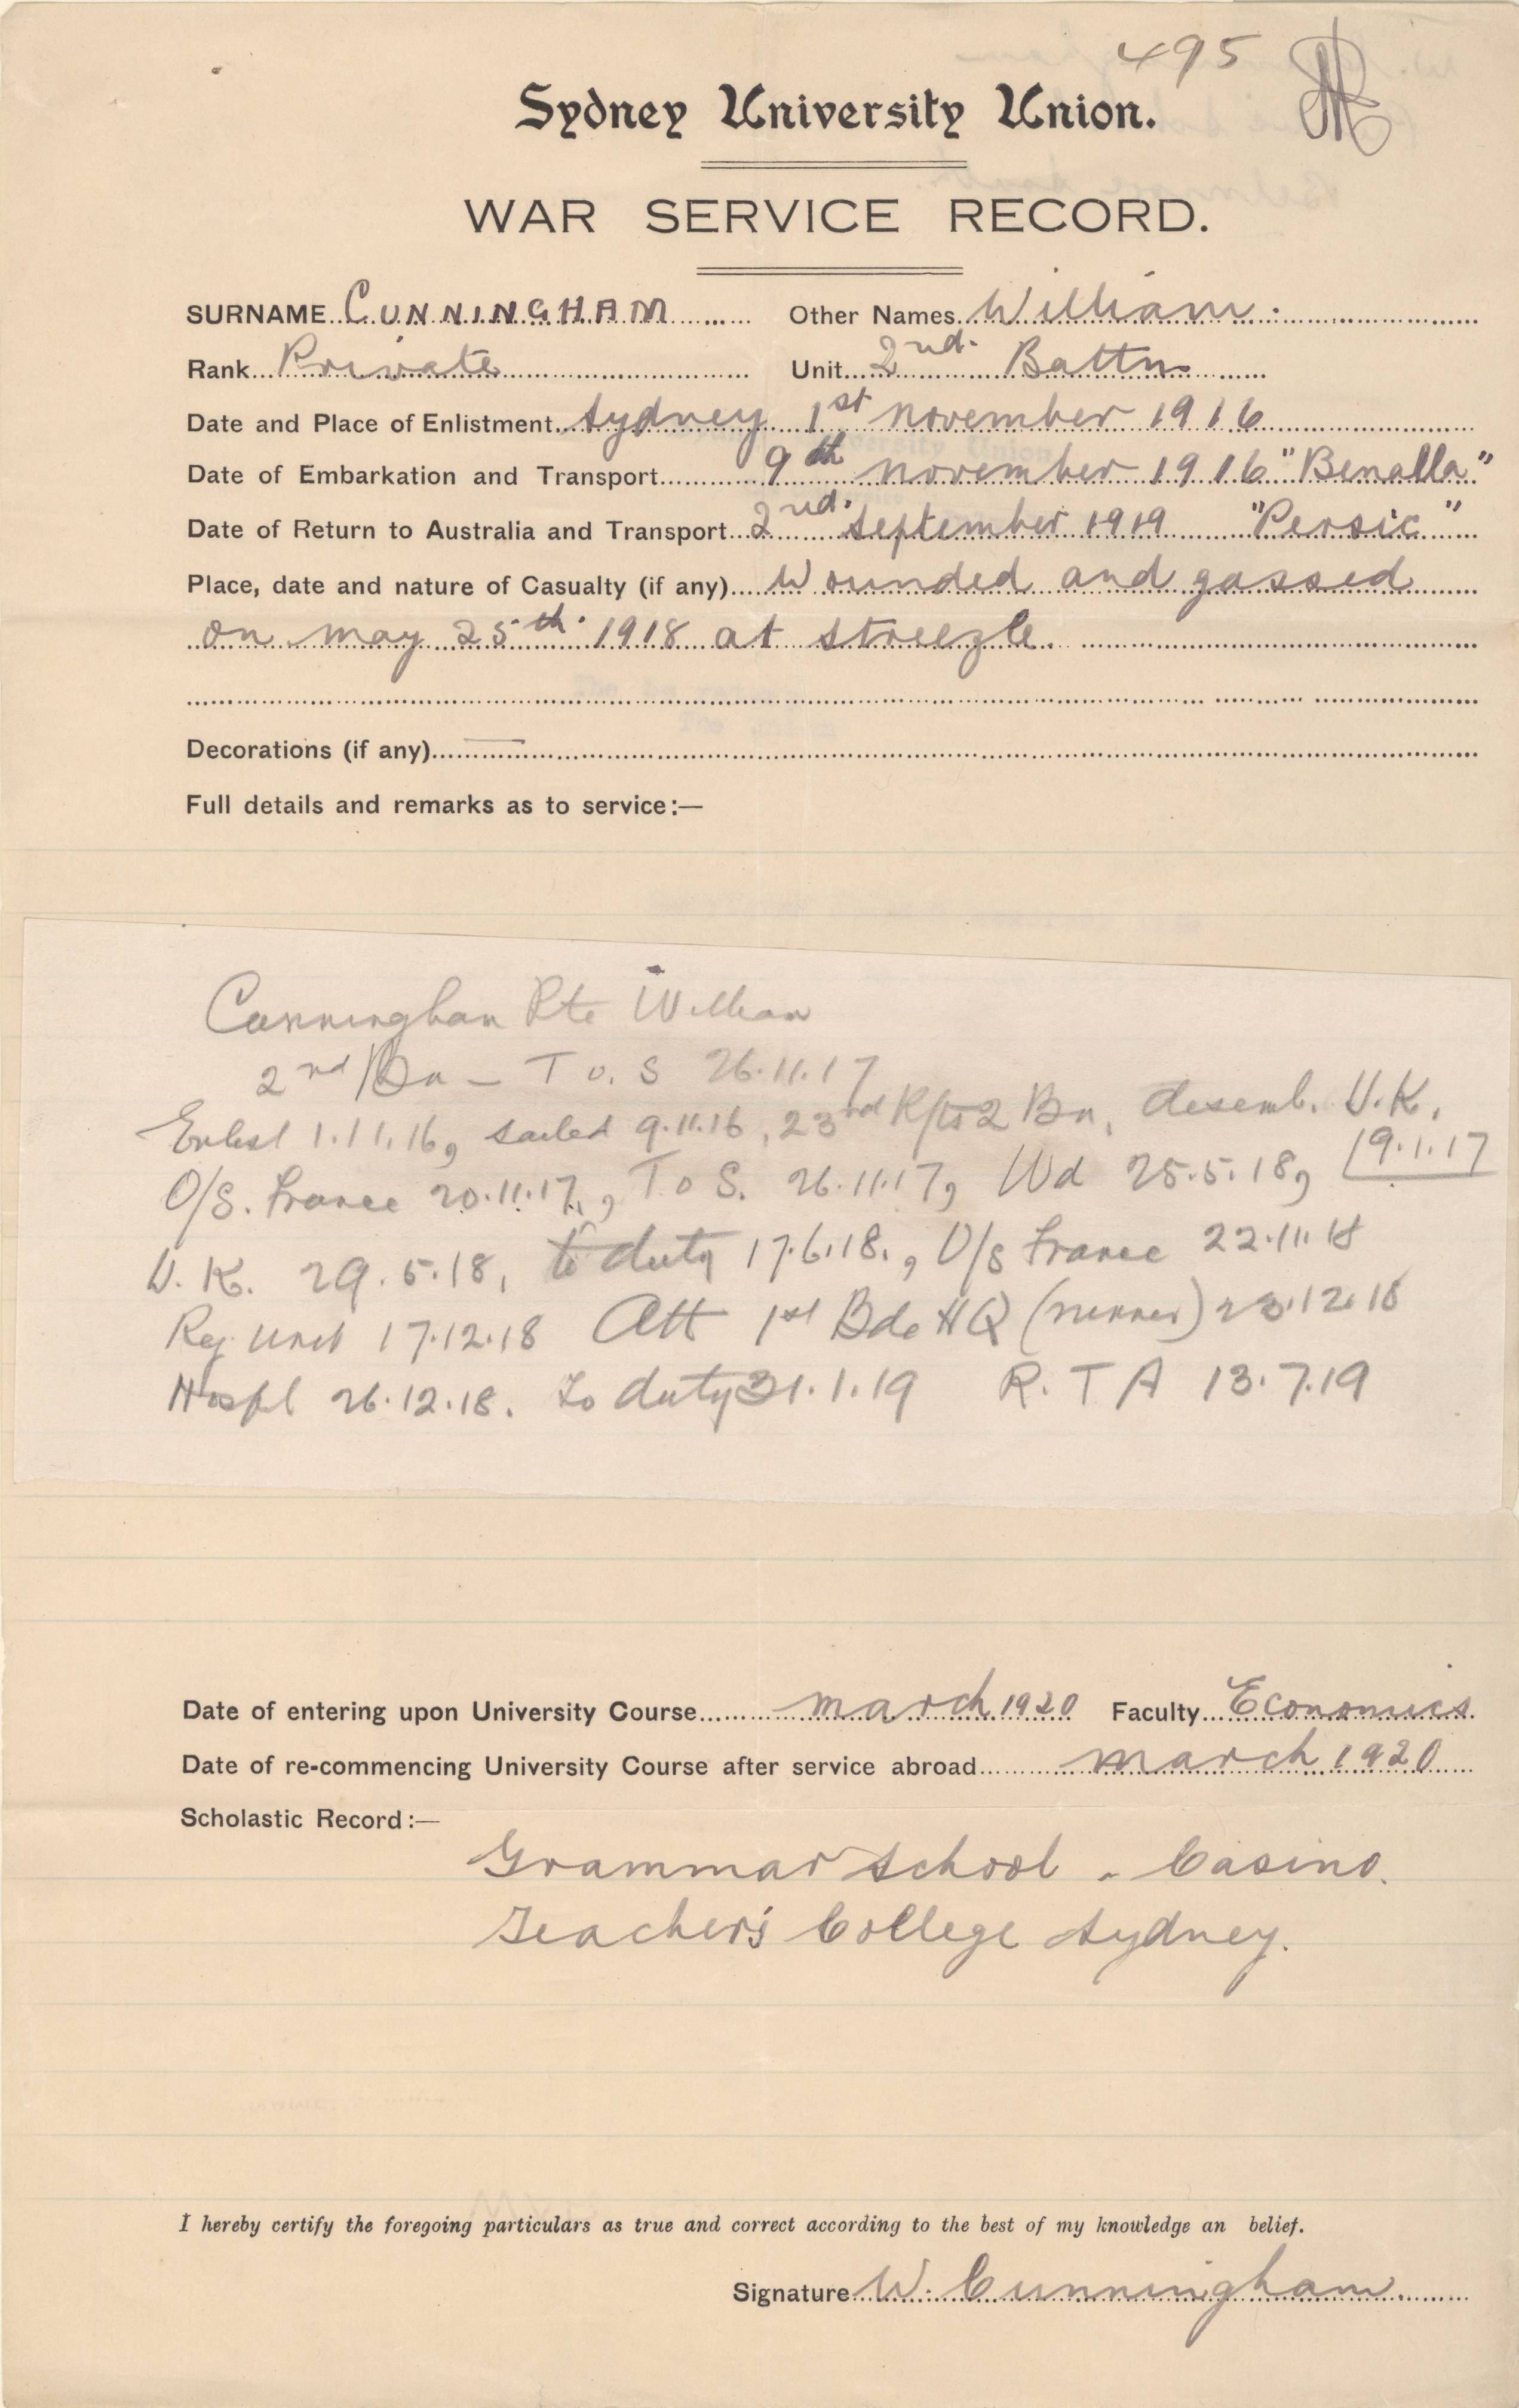 495
Sydney University Union.
WAR SERVICE RECORD.
SURNAME CUNNINGHAM Other Names William.
Rank Private Unit 2nd. Battn.
Date and Place of Enlistment Sydney 1st November 1916
Date of Embarkation and Transport 9th November 1916 "Benalla"
Date of Return to Australia and Transport 2nd. September 1919 "Persic"
Place, date and nature of Casualty (if any) Wounded and gassed
on May 25th. 1918 at Streezle.
Decorations (if any) —
Full details and remarks as to service:—
Cunningham Pte William
2nd/Bn — T o. S 26.11.17
Enlist 1.11.16, sailed 9.11.16, 23rd R/fts 2 Bn, disemb. U.K.,
19.1.17
O/S. France 20.11.17, T o S. 26.11.17, Wd 25.5.18,
U.K. 29.5.18, to duty 17.6.18., O/S France 22.11.18
Rej unit 17.12.18 Att 1st Bde HQ (runner) 23.12.18
Hospl 26.12.18. to duty 31.1.19 R.T A 13.7.19
Date of entering upon University Course March 1920 Faculty Economics.
Date of re-commencing University Course after service abroad March 1920
Scholastic Record:—
Grammar School - Casino.
Teacher's College Sydney.
I hereby certify the foregoing particulars as true and correct according to the best of my knowledge an belief.
Signature W. Cunningham.